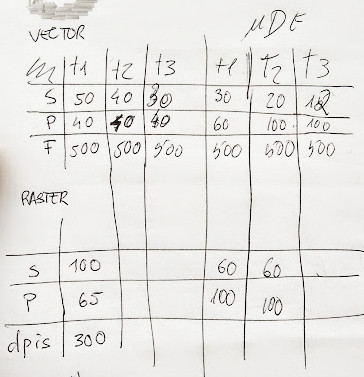 VECTOR MDF
m t1 t2 t3 t1 t2 t3
S 50 40 30 30 20
P 40 40 40 60 100 100
F 500 500 500 500 500 500
RASTER
S 100 60 60
P 65 100 100
dpis 300